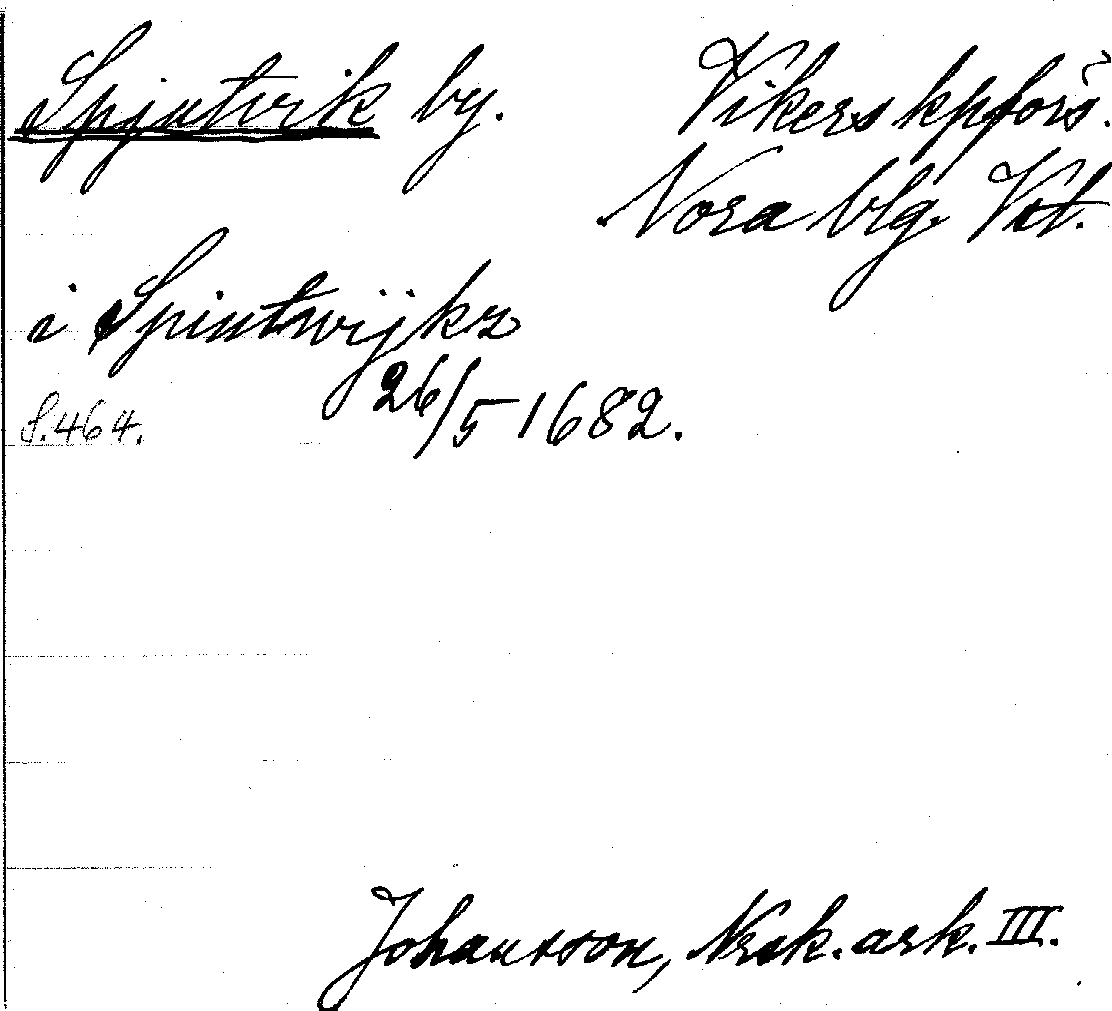 Spjutvik by. Vikers kpförs.
Nora blg. Vstl.
i Spiutwijkz
26/5 1682.
S. 464.
Johansson, Nrsk. ark. III.